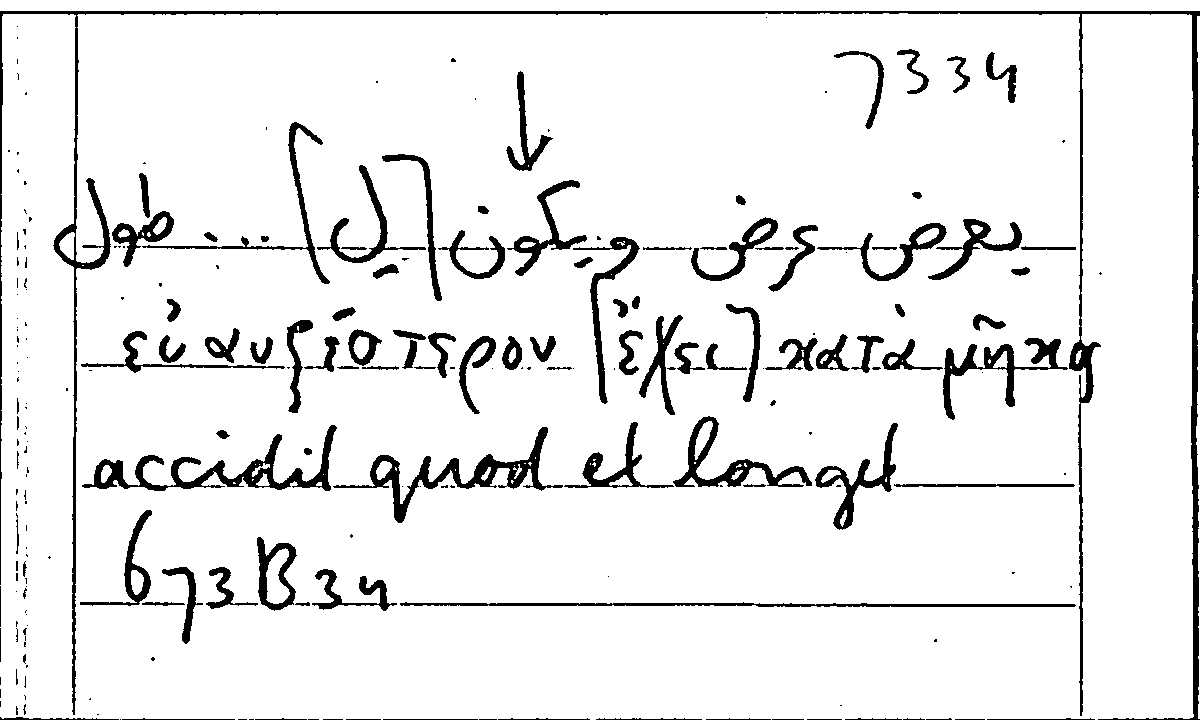 7334
↓
يعرض عرض ويكون [ ] ... طول
εὐαυξέστερον [ἔχει] κατὰ μῆκος
accidit quod et longet
673B34